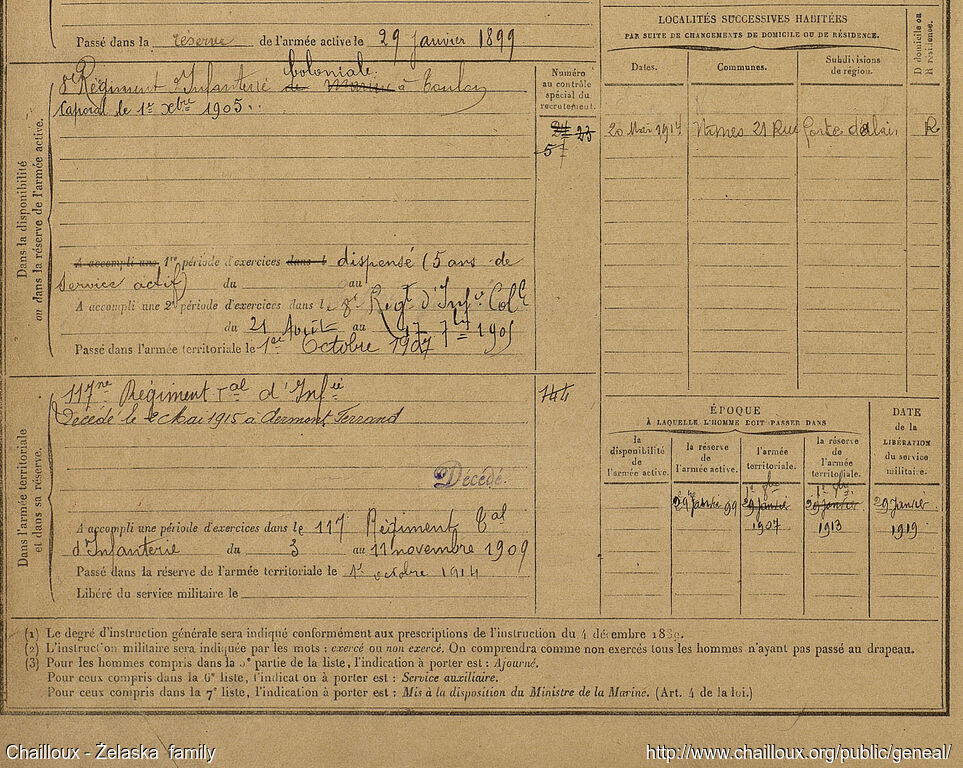 Passé dans la réserve de l'armée active le 29 janvier 1899
Dans la disponibilité
ou dans la réserve de l'armée active.
8e Régiment d'Infanterie Coloniale de Marine à Toulon
Caporal le 1er Xbre 1905..
A accompli une 1re période d'exercices dans l dispensé (5 ans de
service actif) du au
A accompli une 2e période d'exercices dans le 8e Regt d'Infie Colle
du 21 Août au 17 7bre 1905
Passé dans l'armée territoriale le 1er Octobre 1907
Numéro
au contrôle
spécial du
recrutement.
23
57
Dans l'armée territoriale
et dans sa réserve.
117me Régiment Tal d'Infie
Décédé le 2 Mai 1915 à Clermont Ferrand
Décédé.
144
A accompli une période d'exercices dans le 117e Régiment Tal
d'Infanterie du 3 au 11 novembre 1909
Passé dans la réserve de l'armée territoriale le 1er octobre 1914
Libéré du service militaire le
LOCALITÉS SUCCESSIVES HABITÉES
PAR SUITE DE CHANGEMENTS DE DOMICILE OU DE RÉSIDENCE.
D domicile ou
R résidence.
Dates.
Communes.
Subdivisions
de région.
20 Mai 1914 Nimes 21 Rue Porte d'alais R
ÉPOQUE
À LAQUELLE L'HOMME DOIT PASSER DANS
la
disponibilité
de
l'armée active.
la réserve
de
l'armée active.
l'armée
territoriale.
la réserve
de
l'armée
territoriale.
DATE
de la
LIBÉRATION
du service
militaire.
29 Janvier 99
1er 8bre
29 Janvier
1907
1er 8bre
29 Janvier
1913
29 Janvier
1919
(1) Le degré d'instruction générale sera indiqué conformément aux prescriptions de l'instruction du 4 décembre 1889.
(2) L'instruction militaire sera indiquée par les mots : exercé ou non exercé. On comprendra comme non exercés tous les hommes n'ayant pas passé au drapeau.
(3) Pour les hommes compris dans la 5e partie de la liste, l'indication à porter est : Ajourné.
Pour ceux compris dans la 6e liste, l'indication à porter est : Service auxiliaire.
Pour ceux compris dans la 7e liste, l'indication à porter est : Mis à la disposition du Ministre de la Marine. (Art. 4 de la loi.)
Chailloux - Żelaska family
http://www.chailloux.org/public/geneal/